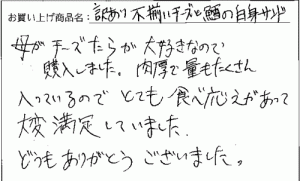 お買い上げ商品名:訳あり不揃いチーズと鱈の白身サンド
母がチーズたらが大好きなので
購入しました。肉厚で量もたくさん
入っているのでとても食べ応えがあって
大変満足していました.
どうもありがとうございました。